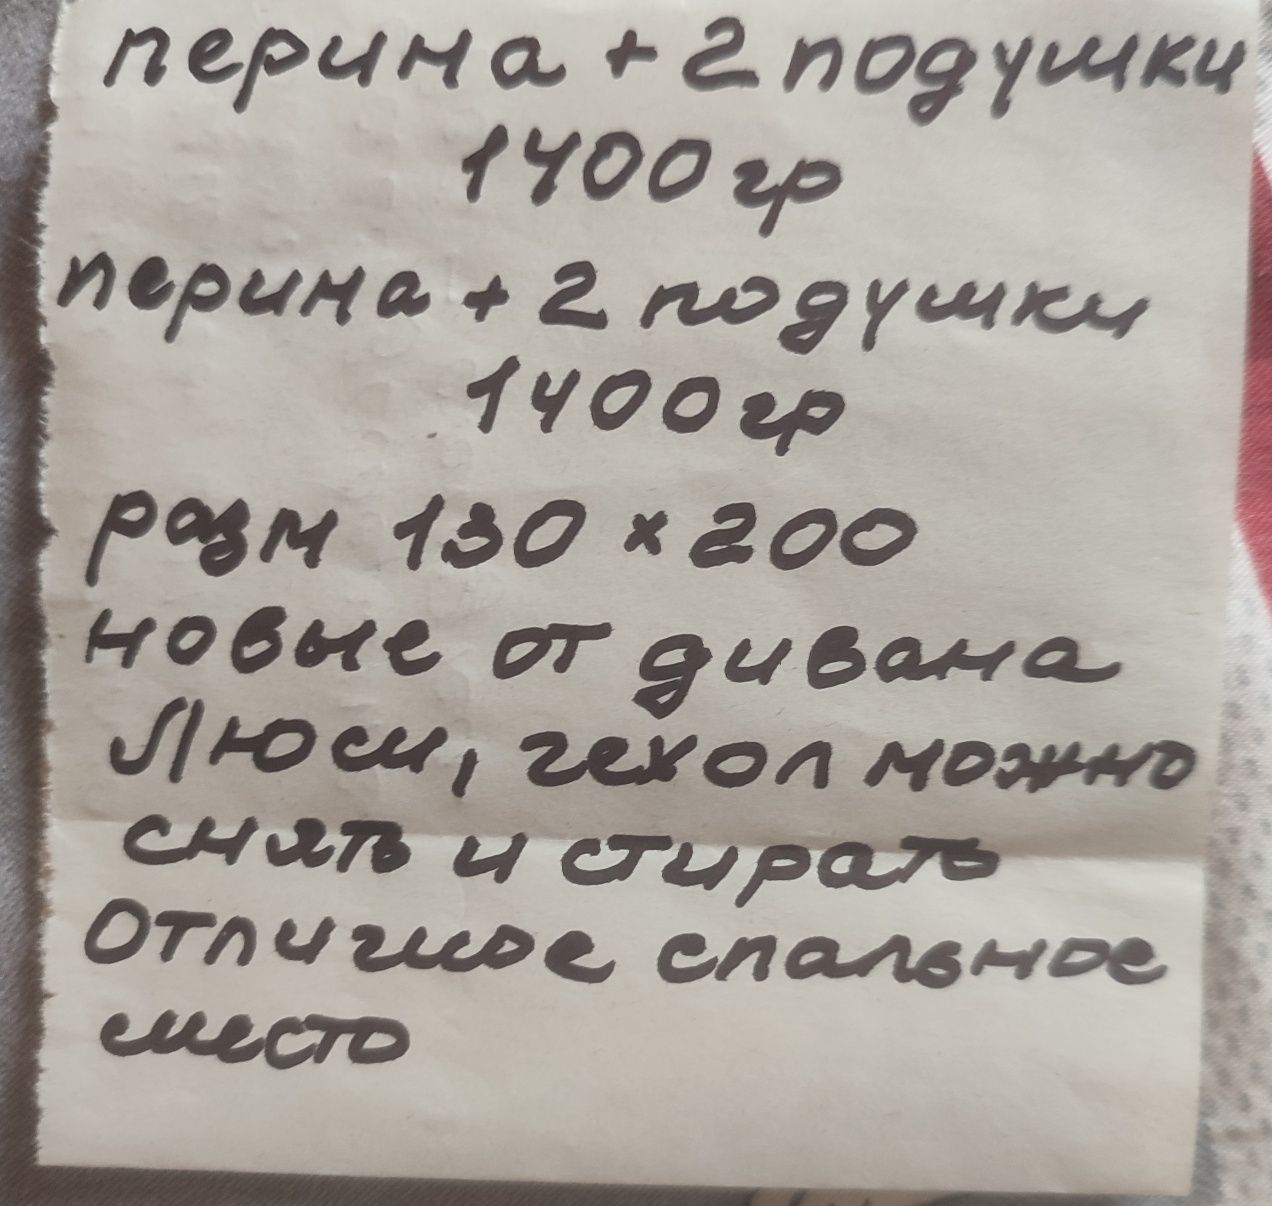 перина + 2 подушки
1400 гр
перина + 2 подушки
1400 гр
разм 130 × 200
новые от дивана
Люси, чехол можно
снять и стирать
Отличное спальное
место